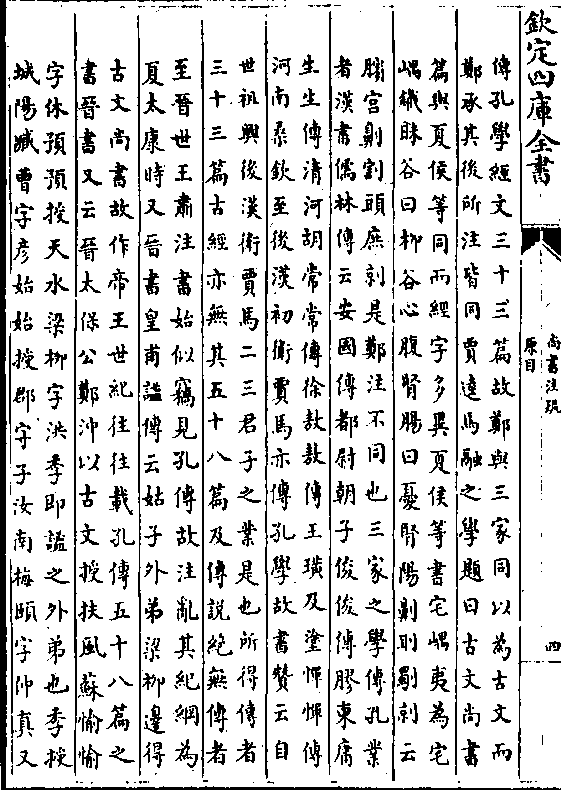 欽定四庫全書
尚書注疏
原目
四
傳孔學經文三十三篇故鄭與三家同以為古文而
鄭承其後所注皆同賈逵馬融之學題曰古文尚書
篇與夏侯等同而經字多異夏侯等書宅嵎夷為宅
嵎鐵昧谷曰柳谷心腹腎腸曰憂腎陽劓刵劅剠云
臏宮劓割頭庶剠是鄭注不同也三家之學傳孔業
者漢書儒林傳云安國傳都尉朝子俊俊傳膠東庸
生生傳清河胡常常傳徐敖敖傳王璜及塗惲惲傳
河南桑欽至後漢初衛賈馬亦傳孔學故書贊云自
世祖興後漢衛賈馬二三君子之業是也所得傳者
三十三篇古經亦無其五十八篇及傳說絕無傳者
至晉世王肅注書始似竊見孔傳故注亂其紀綱為
夏太康時又晉書皇甫謐傳云姑子外弟梁柳邊得
古文尚書故作帝王世紀往往載孔傳五十八篇之
書晉書又云晉太保公鄭沖以古文授扶風蘇愉愉
字休預預授天水梁柳字洪季即謐之外弟也季授
城陽臧曹字彥始始授郡字子汝南梅頤字仲真又